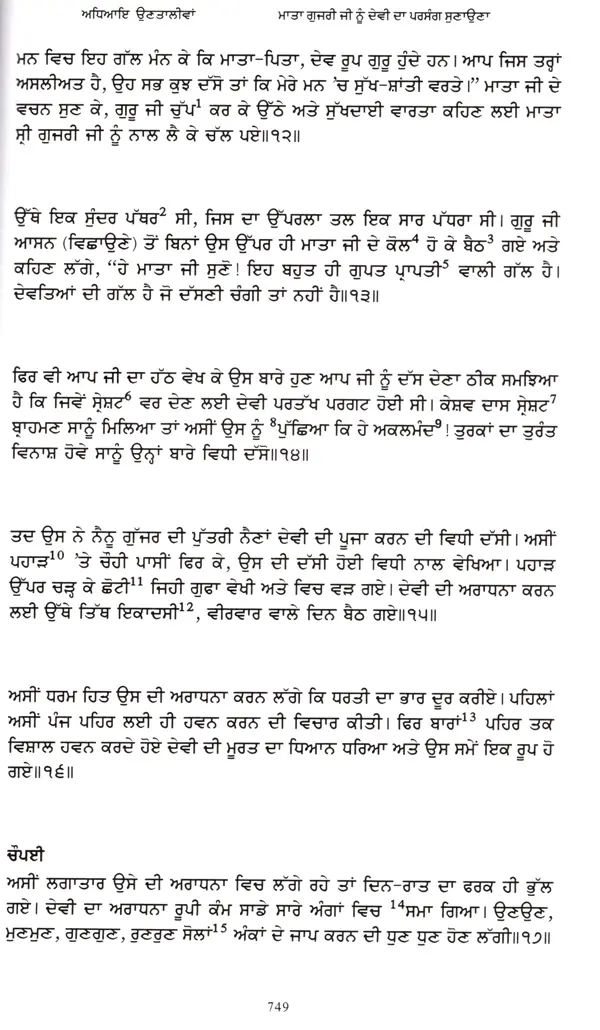 ਅਧਿਆਇ ਉਣਤਾਲੀਵਾਂ ਮਾਤਾ ਗੁਜਰੀ ਜੀ ਨੂੰ ਦੇਵੀ ਦਾ ਪਰਸੰਗ ਸੁਣਾਉਣਾ
ਮਨ ਵਿਚ ਇਹ ਗੱਲ ਮੰਨ ਕੇ ਕਿ ਮਾਤਾ-ਪਿਤਾ, ਦੇਵ ਰੂਪ ਗੁਰੂ ਹੁੰਦੇ ਹਨ। ਆਪ ਜਿਸ ਤਰ੍ਹਾਂ
ਅਸਲੀਅਤ ਹੈ, ਉਹ ਸਭ ਕੁਝ ਦੱਸੋ ਤਾਂ ਕਿ ਮੇਰੇ ਮਨ 'ਚ ਸੁੱਖ-ਸ਼ਾਂਤੀ ਵਰਤੇ।” ਮਾਤਾ ਜੀ ਦੇ
ਵਚਨ ਸੁਣ ਕੇ, ਗੁਰੂ ਜੀ ਚੁੱਪ¹ ਕਰ ਕੇ ਉੱਠੇ ਅਤੇ ਸੁੱਖਦਾਈ ਵਾਰਤਾ ਕਹਿਣ ਲਈ ਮਾਤਾ
ਸ੍ਰੀ ਗੁਜਰੀ ਜੀ ਨੂੰ ਨਾਲ ਲੈ ਕੇ ਚੱਲ ਪਏ॥੧੨॥
ਉੱਥੇ ਇਕ ਸੁੰਦਰ ਪੱਥਰ² ਸੀ, ਜਿਸ ਦਾ ਉੱਪਰਲਾ ਤਲ ਇਕ ਸਾਰ ਪੱਧਰਾ ਸੀ। ਗੁਰੂ ਜੀ
ਆਸਨ (ਵਿਛਾਉਣੇ) ਤੋਂ ਬਿਨਾਂ ਉਸ ਉੱਪਰ ਹੀ ਮਾਤਾ ਜੀ ਦੇ ਕੋਲ⁴ ਹੋ ਕੇ ਬੈਠ³ ਗਏ ਅਤੇ
ਕਹਿਣ ਲੱਗੇ, “ਹੇ ਮਾਤਾ ਜੀ ਸੁਣੋ! ਇਹ ਬਹੁਤ ਹੀ ਗੁਪਤ ਪ੍ਰਾਪਤੀ⁵ ਵਾਲੀ ਗੱਲ ਹੈ।
ਦੇਵਤਿਆਂ ਦੀ ਗੱਲ ਹੈ ਜੋ ਦੱਸਣੀ ਚੰਗੀ ਤਾਂ ਨਹੀਂ ਹੈ॥੧੩॥
ਫਿਰ ਵੀ ਆਪ ਜੀ ਦਾ ਹੱਠ ਵੇਖ ਕੇ ਉਸ ਬਾਰੇ ਹੁਣ ਆਪ ਜੀ ਨੂੰ ਦੱਸ ਦੇਣਾ ਠੀਕ ਸਮਝਿਆ
ਹੈ ਕਿ ਜਿਵੇਂ ਸ੍ਰੇਸ਼ਟ⁶ ਵਰ ਦੇਣ ਲਈ ਦੇਵੀ ਪਰਤੱਖ ਪਰਗਟ ਹੋਈ ਸੀ। ਕੇਸ਼ਵ ਦਾਸ ਸ੍ਰੇਸ਼ਟ⁷
ਬ੍ਰਾਹਮਣ ਸਾਨੂੰ ਮਿਲਿਆ ਤਾਂ ਅਸੀਂ ਉਸ ਨੂੰ ⁸ਪੁੱਛਿਆ ਕਿ ਹੇ ਅਕਲਮੰਦ⁹! ਤੁਰਕਾਂ ਦਾ ਤੁਰੰਤ
ਵਿਨਾਸ਼ ਹੋਵੇ ਸਾਨੂੰ ਉਨ੍ਹਾਂ ਬਾਰੇ ਵਿਧੀ ਦੱਸੋ॥੧੪॥
ਤਦ ਉਸ ਨੇ ਨੈਨੂ ਗੁੱਜਰ ਦੀ ਪੁੱਤਰੀ ਨੈਣਾਂ ਦੇਵੀ ਦੀ ਪੂਜਾ ਕਰਨ ਦੀ ਵਿਧੀ ਦੱਸੀ। ਅਸੀਂ
ਪਹਾੜ¹⁰ 'ਤੇ ਚੌਹੀ ਪਾਸੀਂ ਫਿਰ ਕੇ, ਉਸ ਦੀ ਦੱਸੀ ਹੋਈ ਵਿਧੀ ਨਾਲ ਵੇਖਿਆ। ਪਹਾੜ
ਉੱਪਰ ਚੜ੍ਹ ਕੇ ਛੋਟੀ¹¹ ਜਿਹੀ ਗੁਫਾ ਵੇਖੀ ਅਤੇ ਵਿਚ ਵੜ ਗਏ। ਦੇਵੀ ਦੀ ਅਰਾਧਨਾ ਕਰਨ
ਲਈ ਉੱਥੇ ਤਿੱਥ ਇਕਾਦਸੀ¹², ਵੀਰਵਾਰ ਵਾਲੇ ਦਿਨ ਬੈਠ ਗਏ॥੧੫॥
ਅਸੀਂ ਧਰਮ ਹਿਤ ਉਸ ਦੀ ਅਰਾਧਨਾ ਕਰਨ ਲੱਗੇ ਕਿ ਧਰਤੀ ਦਾ ਭਾਰ ਦੂਰ ਕਰੀਏ। ਪਹਿਲਾਂ
ਅਸੀਂ ਪੰਜ ਪਹਿਰ ਲਈ ਹੀ ਹਵਨ ਕਰਨ ਦੀ ਵਿਚਾਰ ਕੀਤੀ। ਫਿਰ ਬਾਰਾਂ¹³ ਪਹਿਰ ਤਕ
ਵਿਸ਼ਾਲ ਹਵਨ ਕਰਦੇ ਹੋਏ ਦੇਵੀ ਦੀ ਮੂਰਤ ਦਾ ਧਿਆਨ ਧਰਿਆ ਅਤੇ ਉਸ ਸਮੇਂ ਇਕ ਰੂਪ ਹੋ
ਗਏ॥੧੬॥
ਚੌਪਈ
ਅਸੀਂ ਲਗਾਤਾਰ ਉਸੇ ਦੀ ਅਰਾਧਨਾ ਵਿਚ ਲੱਗੇ ਰਹੇ ਤਾਂ ਦਿਨ-ਰਾਤ ਦਾ ਫਰਕ ਹੀ ਭੁੱਲ
ਗਏ। ਦੇਵੀ ਦਾ ਅਰਾਧਨਾ ਰੂਪੀ ਕੰਮ ਸਾਡੇ ਸਾਰੇ ਅੰਗਾਂ ਵਿਚ ¹⁴ਸਮਾ ਗਿਆ। ਉਣਉਣ,
ਮੁਣਮੁਣ, ਗੁਣਗੁਣ, ਰੁਣਰੁਣ ਸੋਲਾਂ¹⁵ ਅੰਕਾਂ ਦੇ ਜਾਪ ਕਰਨ ਦੀ ਧੁਣ ਧੁਣ ਹੋਣ ਲੱਗੀ॥੧੭॥
749